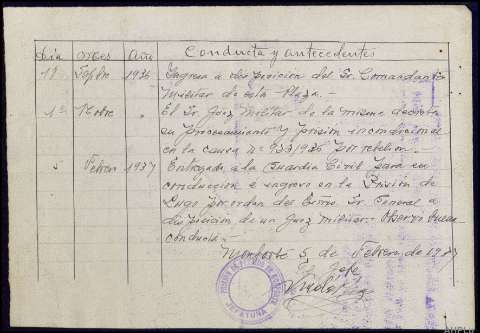 Día Mes Año Conducta y antecedentes
11 Sepbre 1936 Ingresa a disposición del Sr. Comandante
Militar de esta Plaza.-
1º 8bre " El Sr. Juez Militar de la misma decreta
su procesamiento y prisión incondicional
en la causa nº 933/1936 por rebelión.-
5 Febrero 1937 Entregado a la Guardia Civil para su
conducción e ingreso en la Prisión de
Lugo por orden del Excmo. Sr. General a
disposición de un Juez militar.- Observó buena
conducta.-
Monforte 5 de Febrero de 1937
El Jefe
JEFATURA